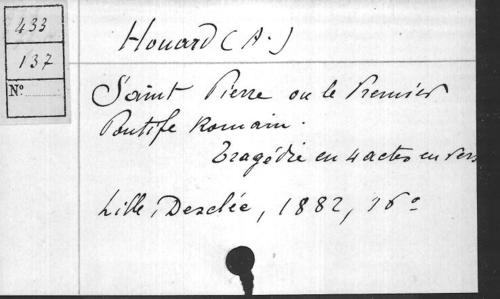 433
137
N°
Houard (A.)
Saint Pierre ou le Premier
Pontife Romain.
Tragédie en 4 actes en vers
Lille, Desclée, 1882, 16°